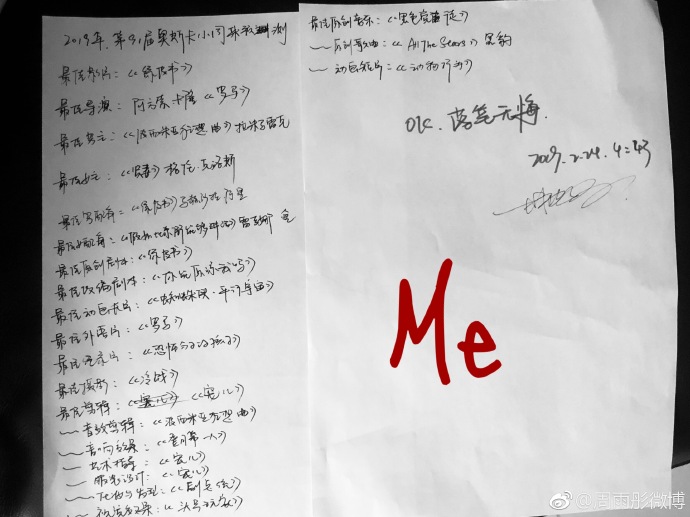 2019年.第91届奥斯卡小同
最佳影片:《绿皮书》
最佳导演: 阿方索·卡隆《罗马》
最佳男主:《波西米亚狂想曲》拉米·雷克
最佳女主:《 》格伦·克洛斯
最佳男配角:《绿皮书》
最佳女配角:《假如比尔街能够讲话》雷吉娜·
最佳原创剧本:《绿皮书》
最佳改编剧本:《你能原谅我吗》
最佳动画长片:《蜘蛛侠·平行宇宙》
最佳外语片:《罗马》
最佳纪录片:《恐怖分子的孩子》
最佳摄影:《冷战》
最佳剪辑: 《宠儿》
音效剪辑:《波西米亚狂想曲》
音响效果:《登月第一人》
艺术指导:《宠儿》
服装设计:《宠儿》
化妆与发型:《副总统》
视觉效果:《头号玩家》
最佳原创音乐:《黑色党徒》
原创歌曲:《All The Stars》黑豹
动画短片:《动物行为》
OK. 落笔无悔.
2019.2.24. 4:43
Me
@周雨彤微博